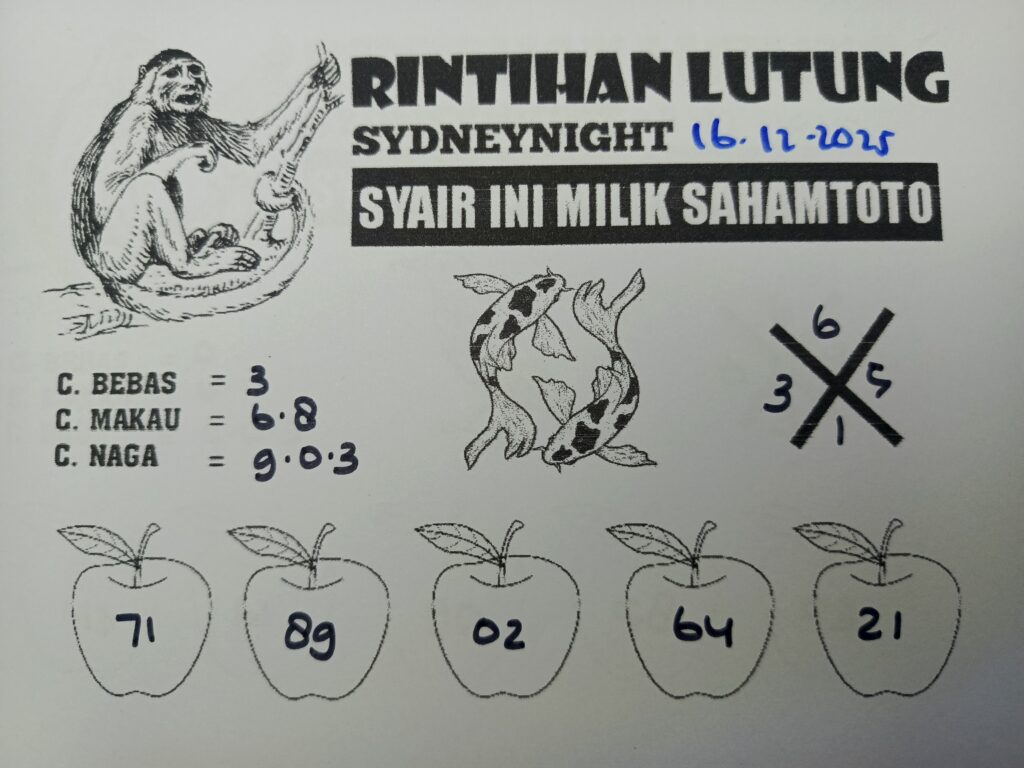 RINTIHAN LUTUNG
SYDNEYNIGHT 16.12.2025
SYAIR INI MILIK SAHAMTOTO
6
3 5
1
C. BEBAS = 3
C. MAKAU = 6.8
C. NAGA = 9.0.3
71 89 02 64 21